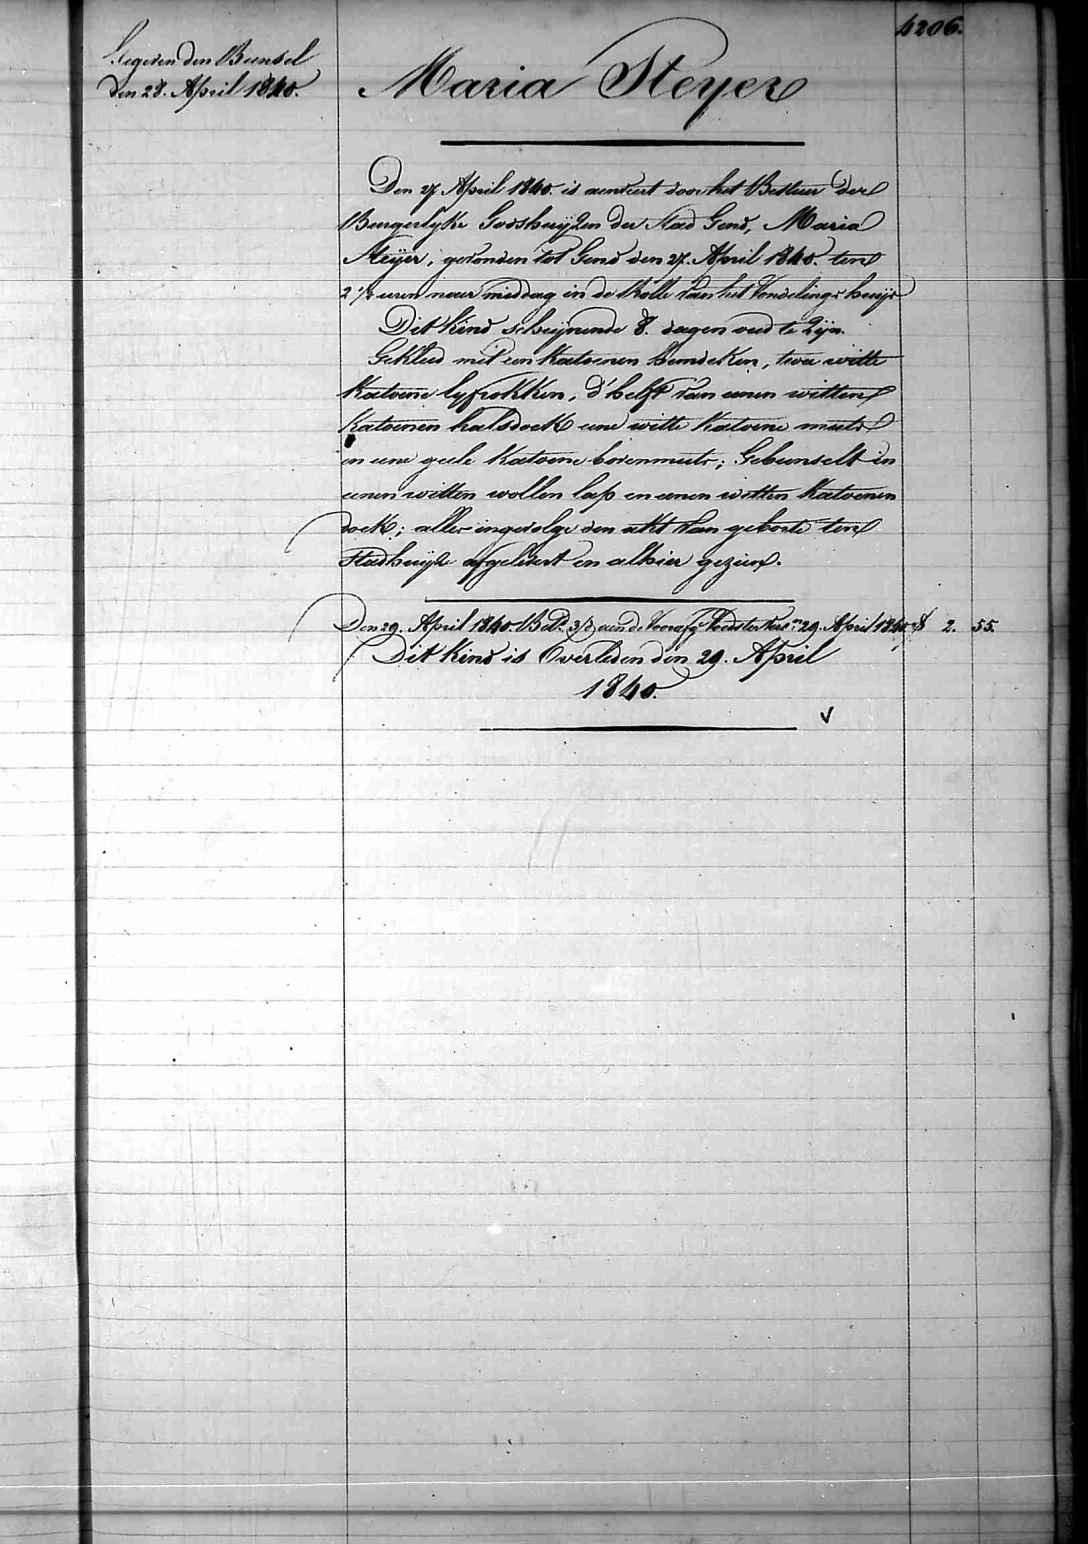 4206.
Gegeven den Bunsel
den 28. April 1840.
Maria Steyer
Den 27 April 1840 is aenveert door het Bestuer der
Burgerlyke Godshuijzen der Stad Gend, Maria
Steijer, gevonden tot Gend den 27. April 1840. ten
2 1/2 uren naer middag in de Rolle van het Vondelings huijs
Dit kind scheijnende 8. dagen oud te zijn.
Gekleed met een katoenen hemdeken, twee witte
katoene lyfrokken, d'helft van eenen witten
katoenen halsdoek eene witte katoene muts
en eene geele katoene bovenmuts; Gebunselt in
eenen witten wollen lap en eenen witten katoenen
doek; alles ingevolge den akt van geboorte ten
Stadhuijze afgelevert en alhier gezien.
Den 29. April 1840. Bet. 3/d aen de Voedster 29. April 1840. 2. 55.
Dit Kind is Overleden den 29. April
1840.